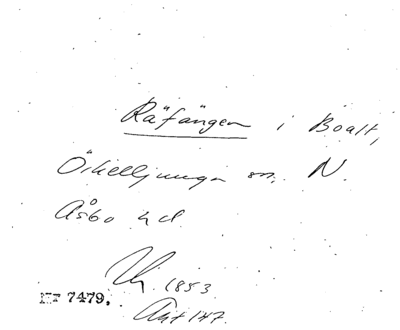 Räfången i Boalt,
Örkelljunga sn. N.
Åsbo hd
1853
7479.
147